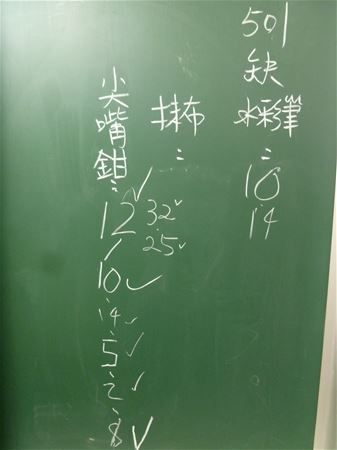 501
缺
水彩筆:
10.
14
抹布:
32✓
25✓
尖嘴鉗:
12✓
10✓
14✓
5✓
2✓
8✓